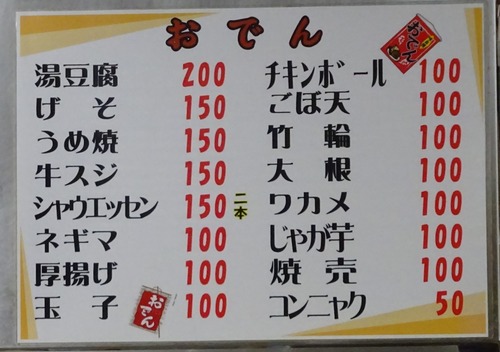 おでん
おでん
湯豆腐 200
げそ 150
うめ焼 150
牛スジ 150
シャウエッセン 150 二本
ネギマ 100
厚揚げ 100
玉子 100
おでん
チキンボール 100
ごぼ天 100
竹輪 100
大根 100
ワカメ 100
じゃが芋 100
焼売 100
コンニャク 50